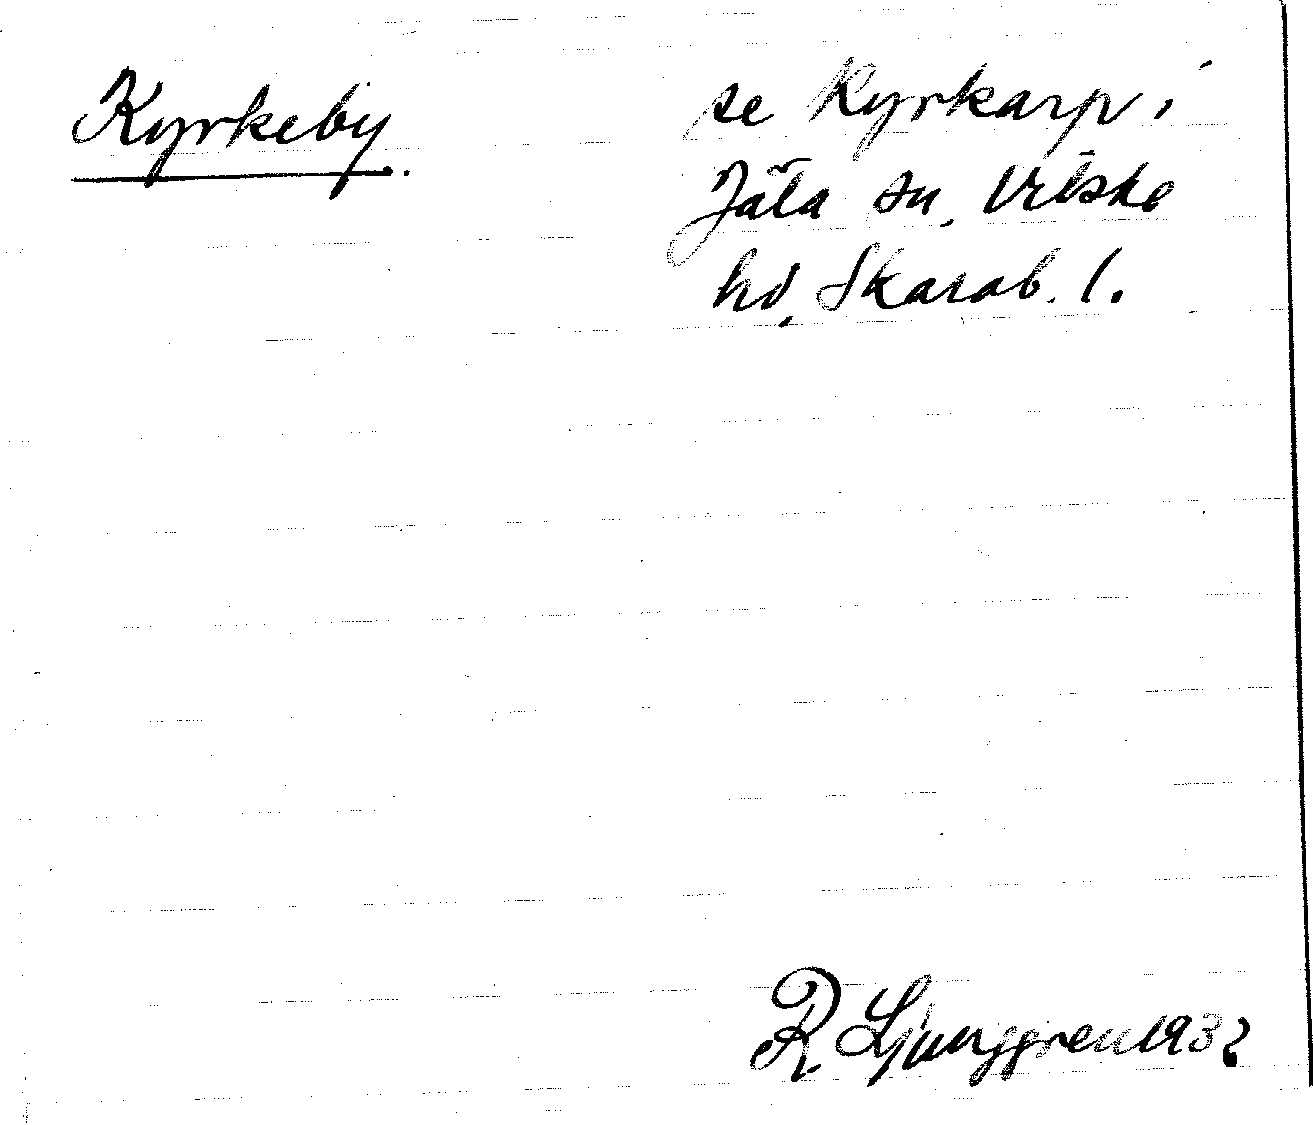 Kyrkeby.
se Kyrkarp i
Jäla sn, Vilske
hd, Skarab. l.
R. Ljunggren 1932